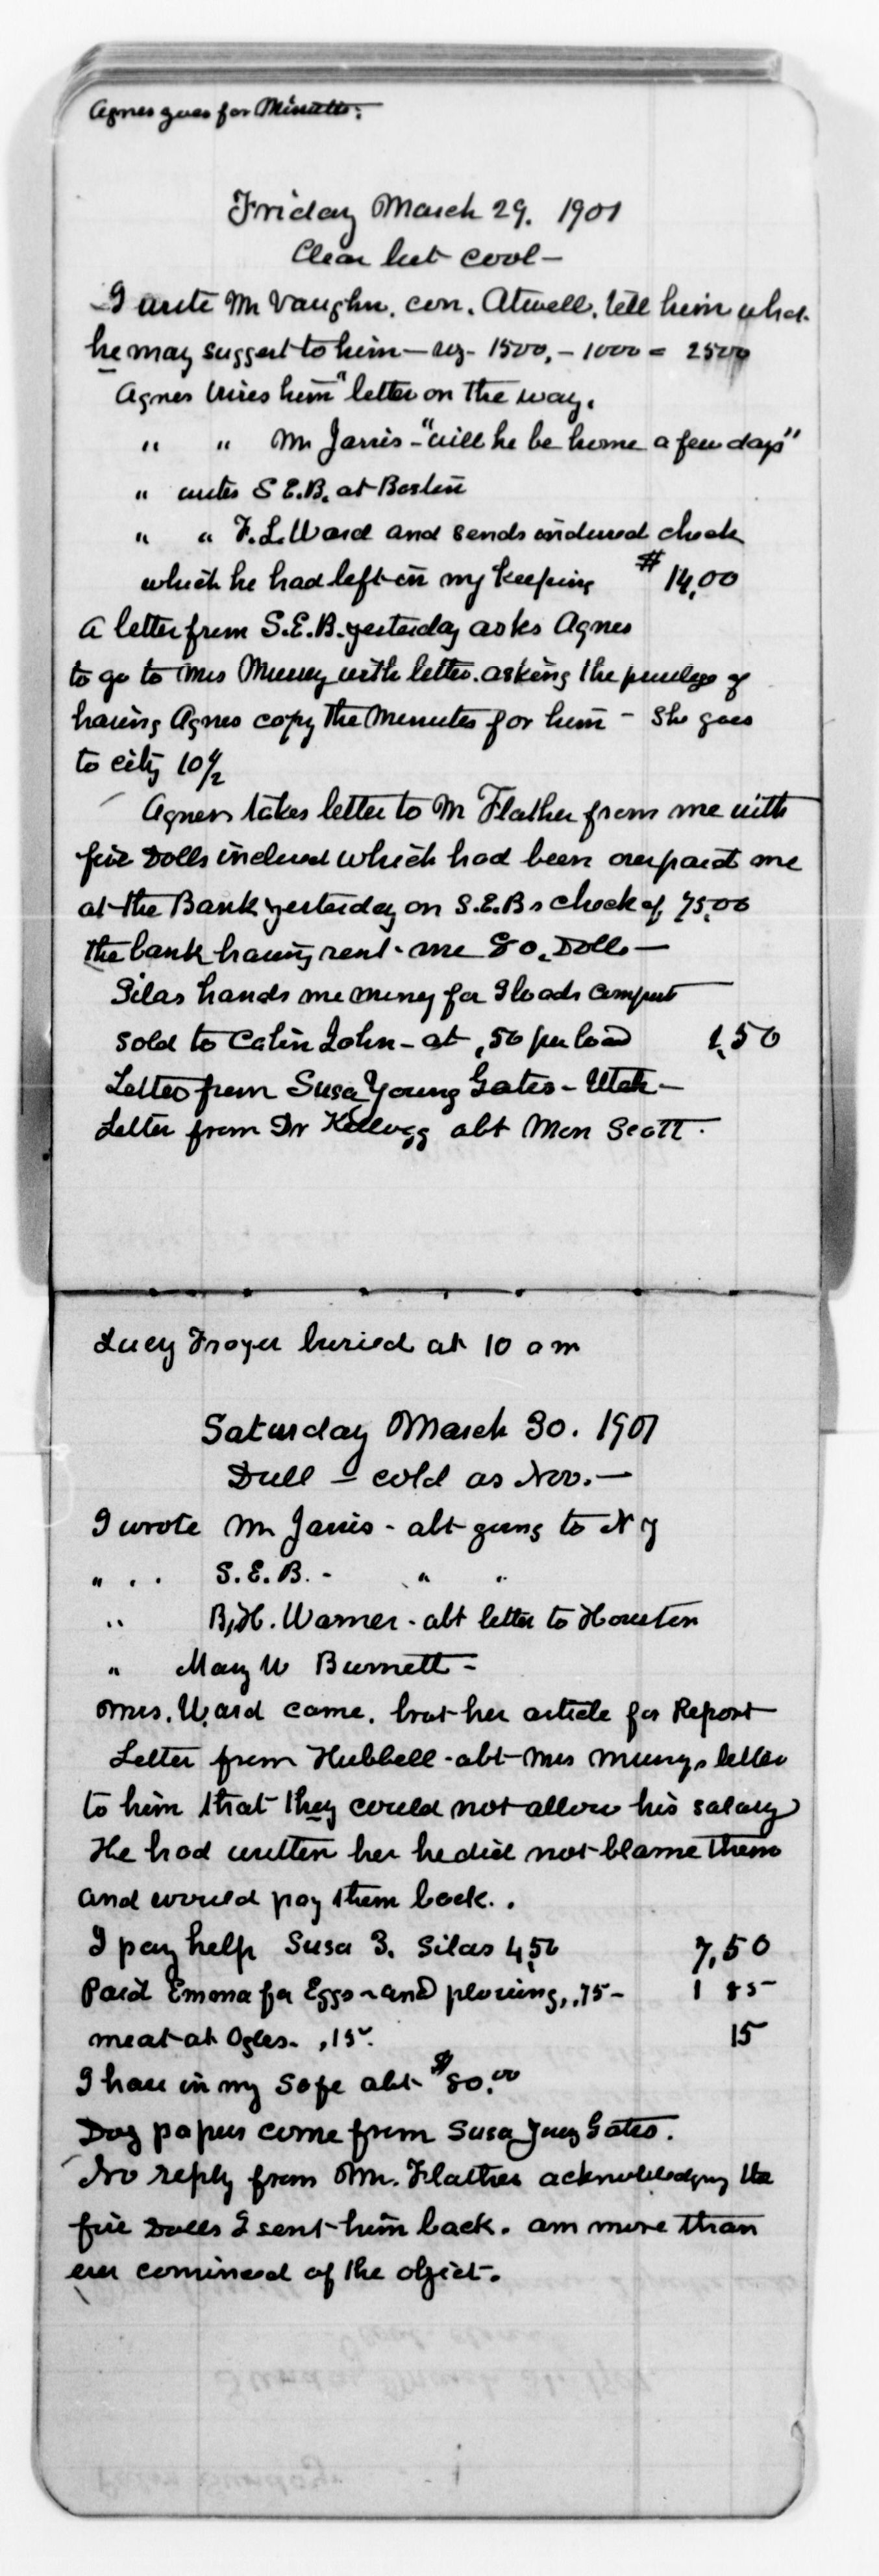 Agnes goes for Minutes.
Friday March 29. 1901
Clear but cool —
I write Mr Vaughn. con. Atwell. tell him what
he may suggest to him — 1500, – 1000 = 2500
Agnes Wires him "letter on the way.
" " Mr Jarvis – "will he be home a few days"
" writes S E.B. at Boston
" " F. L. Ward and sends indorsed check
which he had left in my keeping $14,00
A letter from S.E.B. yesterday asks Agnes
to go to Mrs Mussey with letter. asking the privilege of
having Agnes copy the Minutes for him – She goes
to city 10½
Agnes takes letter to Mr Flather from me with
five Dolls inclosed which had been overpaid me
at the Bank yesterday on S.E.Bs check of 75,00
the bank having sent me 80. Dolls —
Silas hands me money for 3 loads compost
sold to Calvin John – at ,50 per load 1,50
Letter from Susa Young Gates – Utah –
Letter from Dr Kellogg abt Mon Scott.
Lucy Frayer buried at 10 am
Saturday March 30. 1901
Dull – cold as Nov. —
I wrote Mr Jarvis – abt going to N Y
" . . S.E.B. - " "
" B,H. Warner – abt letter to Houston
" Mary W Burnett –
Mrs. Ward came. brot her article for Report
Letter from Hubbell – abt Mrs Mussys letter
to him that they could not allow his salary
He had written her he did not blame them
and would pay them back. .
I pay help Susa 3. Silas 4,50 7,50
Paid Emma for Eggs – and plowing, ,75 – 1 85
meat at Ogles. ,15 15
I have in my Safe abt $80.00
Dog papers come from Susa Yung Gates.
No reply from Mr. Flather acknowledging the
five Dolls I sent him back. am more than
ever convinced of the object.